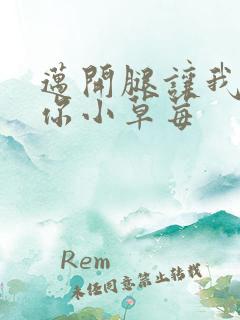 邁開腿讓我
你小草莓
Rem
未任同意禁止转载